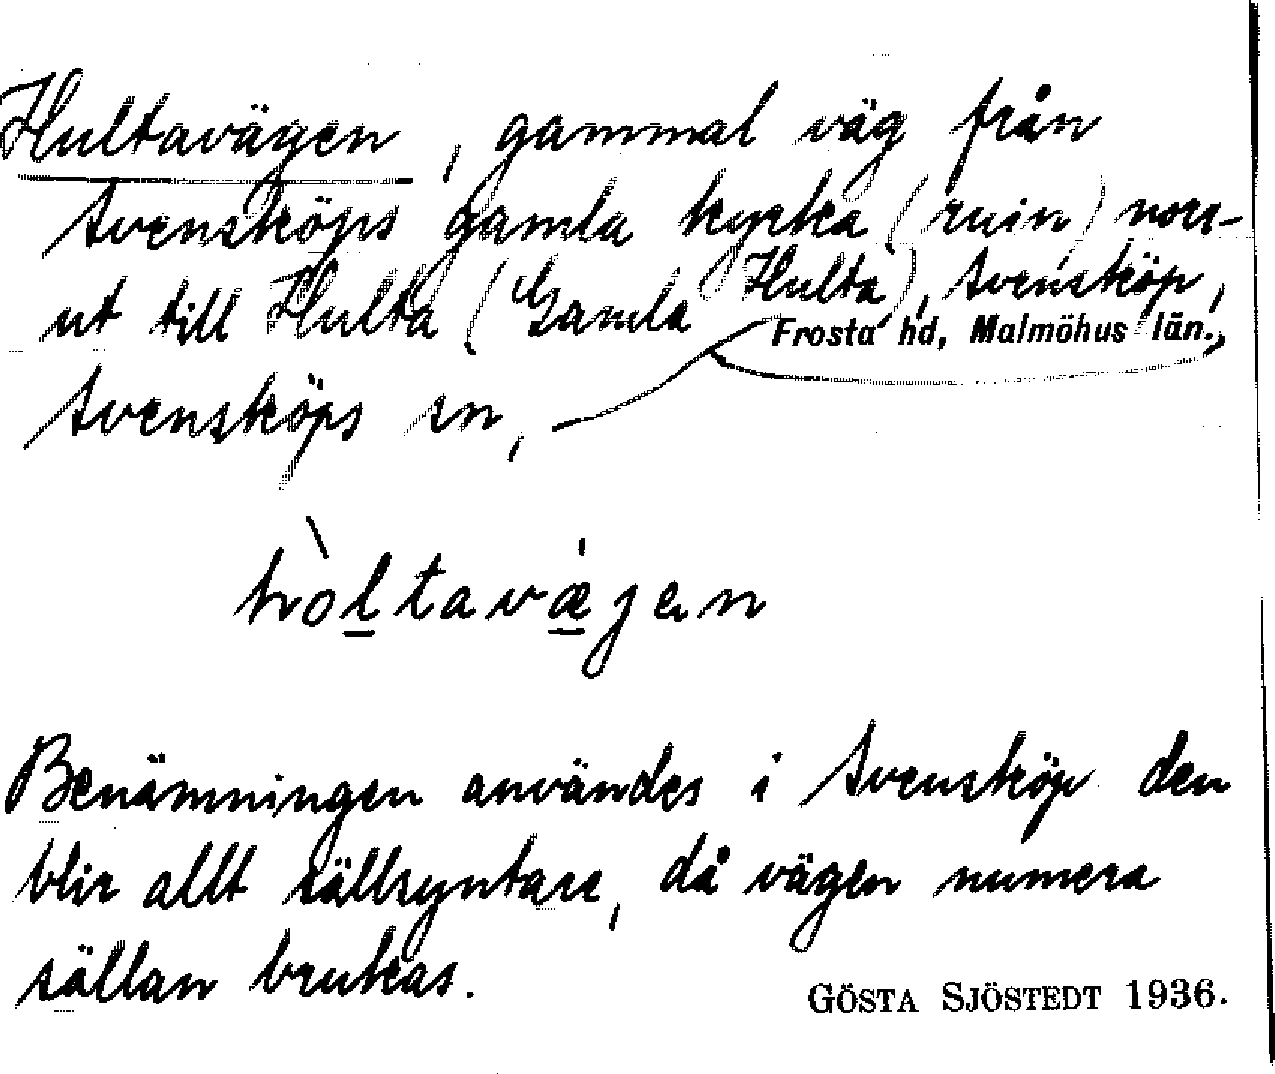 Hultavägen, gammal väg från
Svensköps gamla kyrka (ruin) norr-
ut till Hulta (Gamla Hulta), Svensköp,
Frosta hd, Malmöhus län.,
Svensköps sn,
hòltavǽjen
Benämningen användes i Svensköp den
blir allt sällsyntare, då vägen numera
sällan brukas.
GÖSTA SJÖSTEDT 1936.